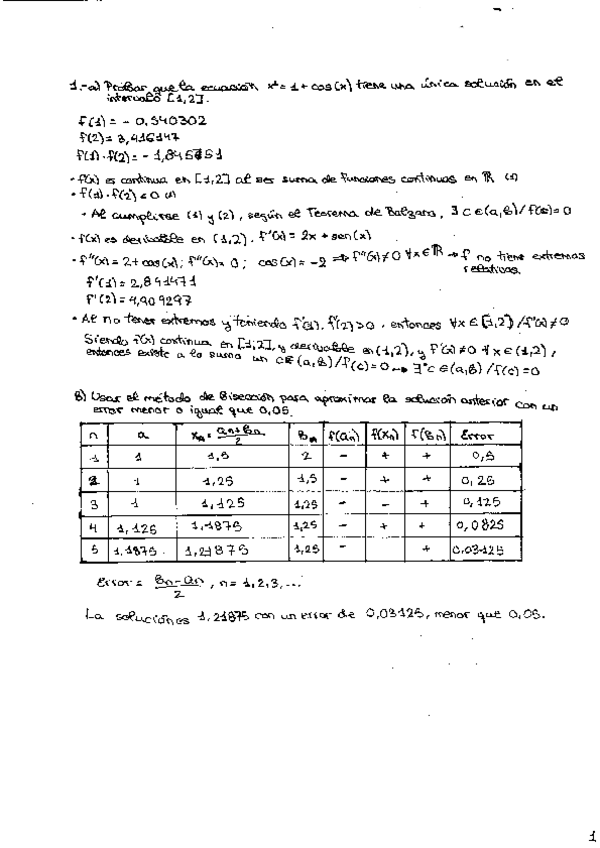 1.-a) Probar que la ecuación x²=1+cos(x) tiene una única solución en el
intervalo [1,2].
f(1)=-0,540302
f(2)=3,416147
f(1)·f(2)=-1,845751
• f(x) es continua en [1,2] al ser suma de funciones continuas en ℝ (1)
• f(1)·f(2)<0 (2)
• Al cumplirse (1) y (2), según el Teorema de Bolzano, ∃ c∈(a,b)/f(c)=0
• f(x) es derivable en (1,2). f'(x)=2x+sen(x)
• f''(x)=2+cos(x); f''(x)=0; cos(x)=-2 ⇒ f''(x)≠0 ∀x∈ℝ → f' no tiene extremos
relativos.
f'(1)=2,841471
f'(2)=4,909297
• Al no tener extremos y teniendo f'(1)·f'(2)>0, entonces ∀x∈[1,2]/f'(x)≠0
Siendo f(x) continua en [1,2], y derivable en (1,2), y f'(x)≠0 ∀x∈(1,2),
entonces existe a lo sumo un c∈(a,b)/f(c)=0 → ∃* c∈(a,b)/f(c)=0
b) Usar el método de Bisección para aproximar la solución anterior con un
error menor o igual que 0,05.
n a xₙ=(aₙ+bₙ)/2 bₙ f(aₙ) f(xₙ) f(bₙ) Error
1 1 1,5 2 - + + 0,5
2 1 1,25 1,5 - + + 0,25
3 1 1,125 1,25 - - + 0,125
4 1,125 1,1875 1,25 - + + 0,0625
5 1,1875 1,21875 1,25 - + 0,03125
Error = (bₙ-aₙ)/2, n=1,2,3,...
La solución es 1,21875 con un error de 0,03125, menor que 0,05.
1